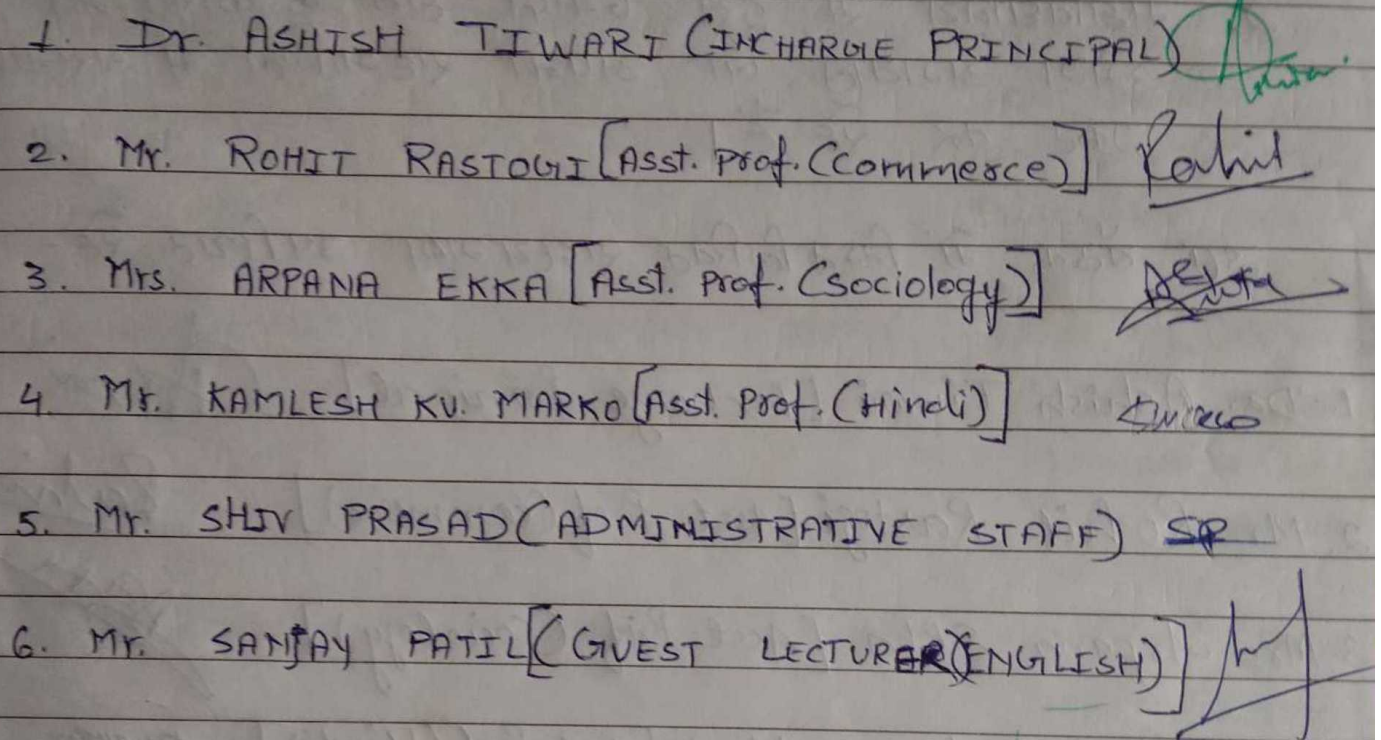 1. Dr. ASHISH TIWARI (INCHARGE PRINCIPAL)
2. Mr. ROHIT RASTOGI [Asst. Prof. (Commerce)] Rohit
3. Mrs. ARPANA EKKA [Asst. Prof. (Sociology)]
4. Mr. KAMLESH KU. MARKO [Asst. Prof. (Hindi)]
5. Mr. SHIV PRASAD (ADMINISTRATIVE STAFF) SP
6. Mr. SANJAY PATIL [(GUEST LECTURER) (ENGLISH)]